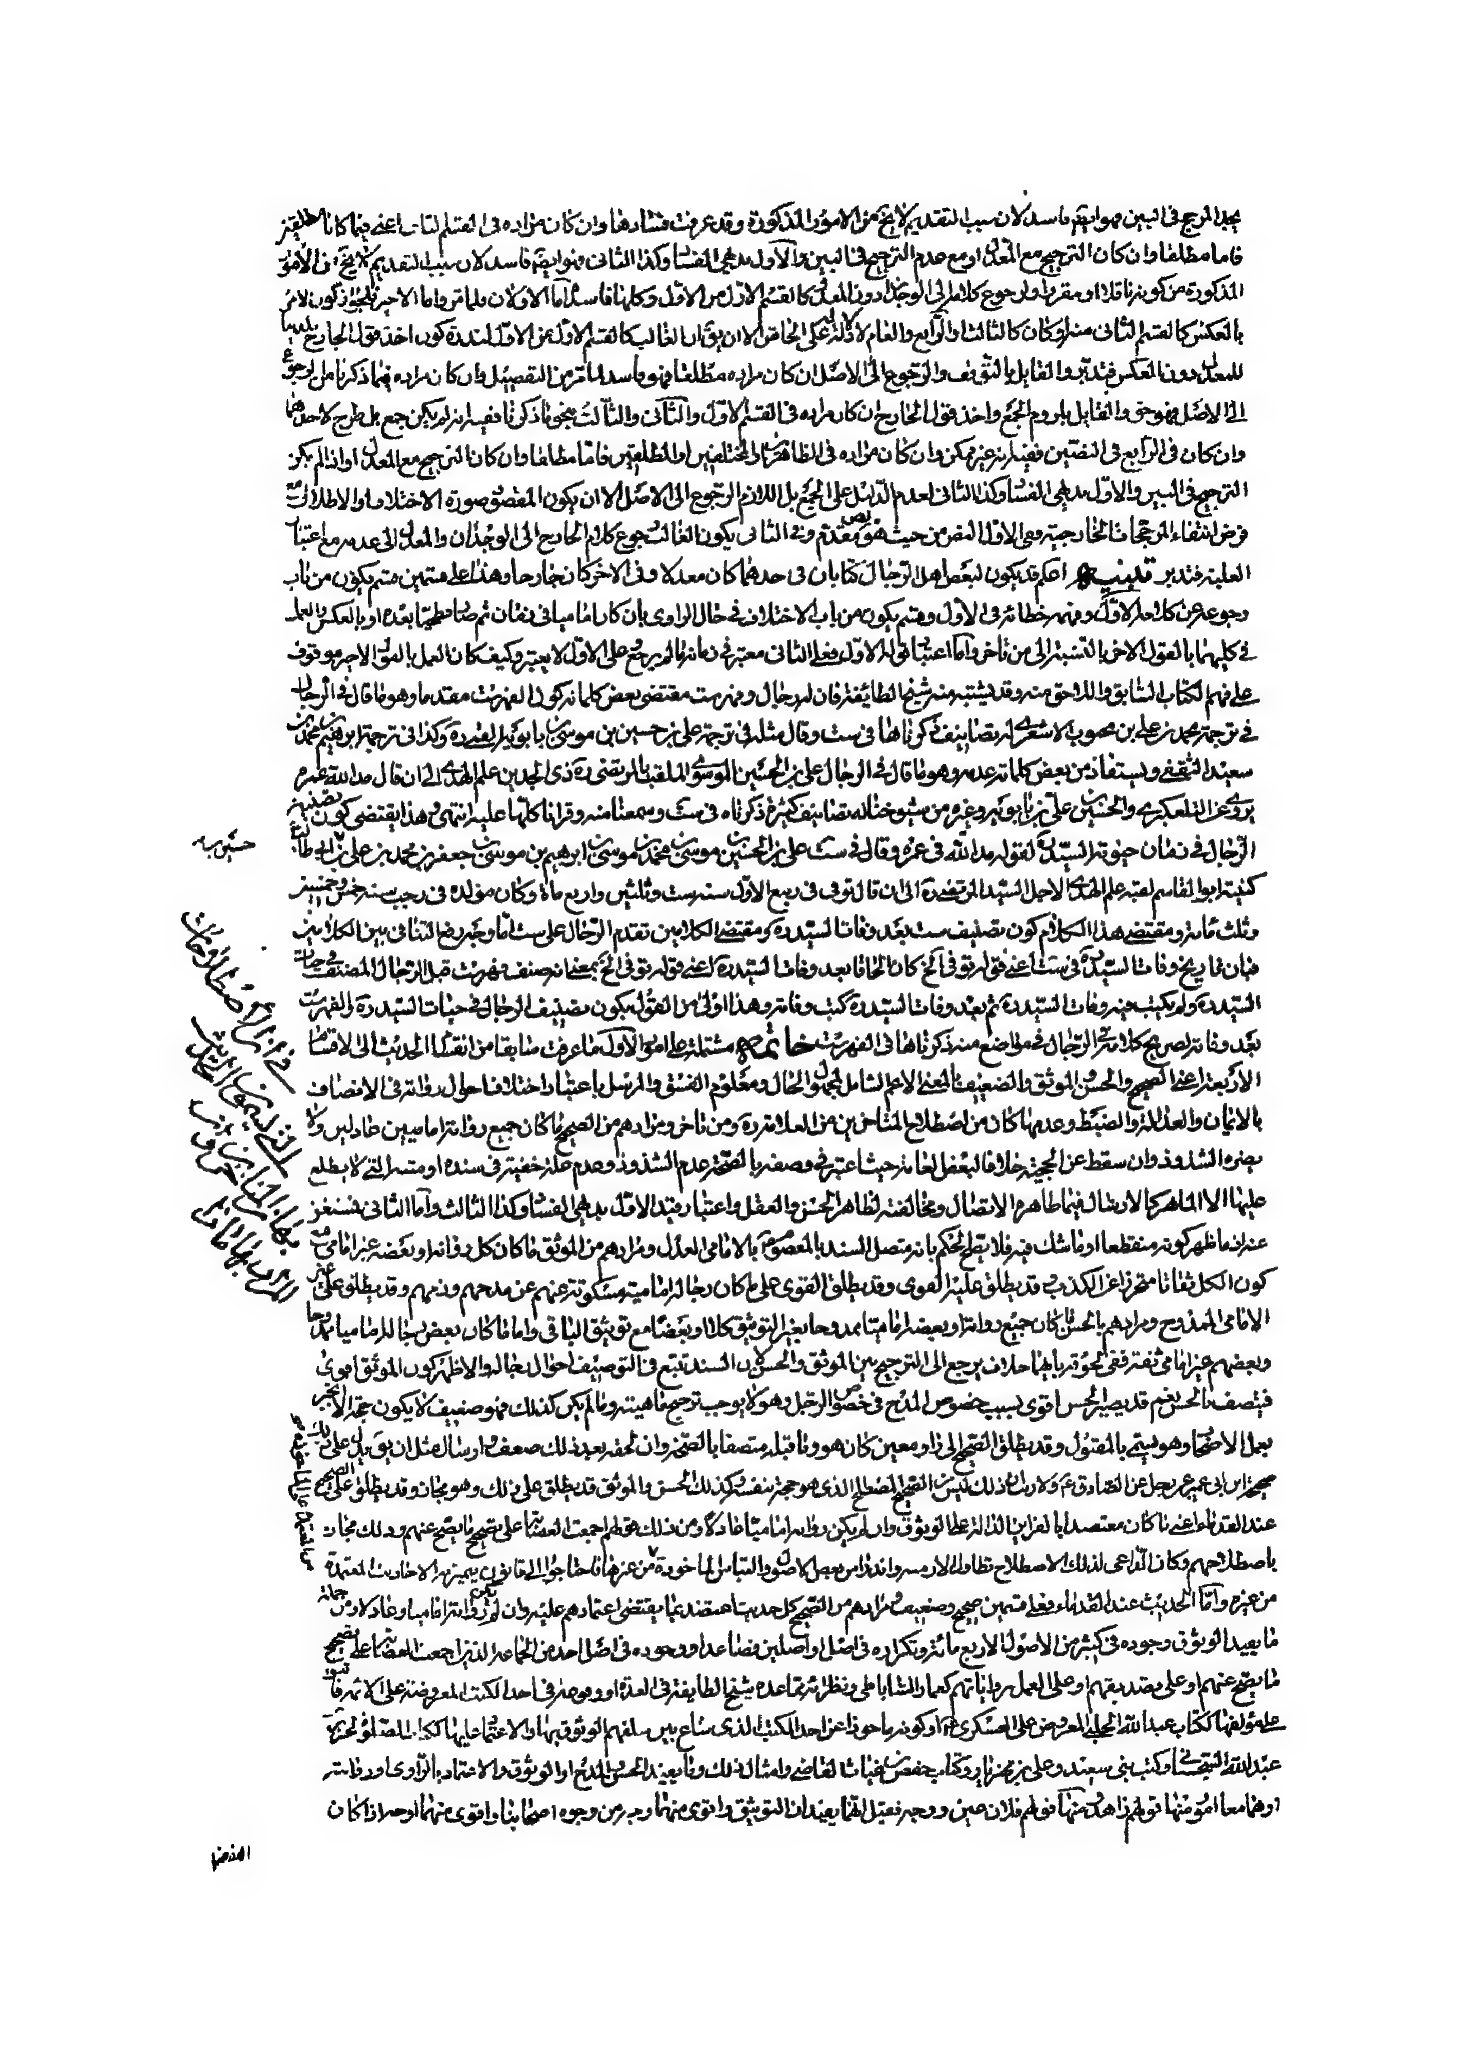 يجد المرجح فى البين فهو ايضا فاسد لان سبب التقديم لا يخ من الامور المذكورة وقد عرفت فسادها وان كان مراده فى القسم الثانى اعنى فيما كانا مطلقين
فاما مطلقا وان كان الترجيح مع المعدل او مع عدم الترجيح فى البين والاول بديهى الفساد وكذا الثانى فهو ايضا فاسد لان سبب التقديم لا يخ من الامور
المذكورة من كونه ناقلا او مقررا ولرجوع كلام الى الوجدان دون المعدل كالقسم الاول من الاول وكلها فاسدة اما الاولان فلما مر واما الاخير فلجواز كون الامر
بالعكس كالقسم الثانى منه او كان كالثالث والرابع والعام لا دلالة على الخاص الا ان يق ان الغالب كالقسم الاول من الاول لندرة كون اخذ قول الجارح
للمعدل دون العكس فتدبر والقايل بالتوقف والرجوع الى الاصل ان كان مراده مطلقا فهو فاسد لما مر من التفصيل وان كان مراده فيما ذكرنا من الرجوع
الى الاصل فهو حق والقايل بلزوم الجمع واخذ قول الجارح ان كان مراده فى القسم الاول والثانى والثالث بنحو ما ذكرنا ففيه انه لم يكن جمع بل طرح لاحدهما
وان كان فى الرابع فى النصين ففيه انه غير ممكن وان كان مراده فى الظاهرين او المختلفين او المطلقين فاما مطلقا وان كان الترجيح مع المعدل او اذا لم يكن
الترجيح فى البين والاول بديهى الفساد وكذا الثانى لعدم الدليل على الجمع بل اللازم الرجوع الى الاصل الا ان يكون المقصود صورة الاختلاف او الاطلاق مع
فرض انتفاء المرجحات الخارجية وفى الاول النص من حيث هو نص مقدم وفى الثانى يكون الغالب رجوع كلام الجارح الى الوجدان والمعدل الى عدمه مع اعتبار
الغلبة فتدبر تنبيه اعلم قد يكون لبعض اهل الرجال كتابان فى احدهما كان معدلا وفى الاخر كان جارحا وهذا على قسمين قسم يكون من باب
رجوعه عن كلامه الاول وفهمه خطائه فى الاول وقسم يكون من باب الاختلاف فى حال الراوى بان كان اماميا فى زمان ثم صار فطحيا بعده او بالعكس والعمل
فى كليهما بالقول الاخر بالنسبة الى من تاخر واما اعتبار قوله الاول فعلى الثانى معتبر فى زمانه ما لم يرجع وعلى الاول لا يعتبر وكيف كان العمل بالقول الاخير موقوف
على فهم الكتاب السابق واللاحق منه وقد يشتبه منه شيخ الطائفة فان له رجال وفهرست مقتضى بعض كلماته كون الفهرست مقدما وهو ما قال فى الرجال
فى ترجمة محمد بن على بن محبوب الاشعرى له تصانيف ذكرناها فى ست وقال مثله فى ترجمة على بن حسين بن موسى بن بابويه القمى ره وكذا فى ترجمة ابرهيم بن محمد بن
سعيد الثقفى ويستفاد من بعض كلماته عدمه وهو ما قال فى الرجال على بن الحسين الموسوى الملقب بالمرتضى ره ذى المجدين علم الهدى الى ان قال مد الله عمره
يروى عن التلعكبرى والحسين بن على بن بابويه وغيره من شيوخنا له تصانيف كثيرة ذكرناه فى ست وسمعنا منه وقرانا كلها عليه انتهى وهذا يقتضى كون تصنيفه
الرجال فى زمان حيوة السيد ره لقوله مد الله فى عمره وقال فى ست على بن الحسين بن موسى بن محمد بن موسى بن ابرهيم بن موسى بن جعفر بن محمد بن على بن ابى طالب
كنيته ابو القاسم لقبه علم الهدى الاجل السيد المرتضى ره الى ان قال توفى فى ربيع الاول سنة ست وثلثين واربع ماة وكان مولده فى رجب سنة خمس وخمسين
وثلث مائة ومقتضى هذا الكلام كون تصنيف ست بعد وفات السيد ره ومقتضى الكلامين تقدم الرجال على ست اما وجه رفع التنافى بين الكلامين
فبان تاريخ وفات السيد ره فى ست اعنى قوله توفى الخ كان الحاقا بعد وفات السيد ره اعنى قوله توفى الخ بمعنى انه صنف فهرست قبل الرجال المصنف فى حيات
السيد ره ولم يكتب فيه وفات السيد ره ثم بعد وفات السيد ره كتب وفاته وهذا اولى من القول بكون تصنيف الرجال فى حيات السيد ره والفهرست
بعد وفاته لصريح كلامه فى الرجال فى مواضع منه ذكرناها فى الفهرست خاتمة مشتملة على امور الاول ما عرفت سابقا من انقسام الحديث الى الاقسام
الاربعة اعنى الصحيح والحسن والموثق والضعيف بالمعنى الاعم الشامل لمجهول الحال ومعلوم الفسق والمرسل باعتبار اختلاف احوال رواته فى الاتصاف
بالايمان والعدالة والضبط وعدمها كان من اصطلاح المتاخرين من العلامة ره ومن تاخر ومرادهم من الصحيح ما كان جميع رواته اماميين عادلين ولا
يضره الشذوذ وان سقط عن الحجية خلافا لبعض العامة حيث اعتبر فى وصفه بالصحة عدم الشذوذ وعدم علة خفية فى سنده او متنه التى لا يطلع
عليها الا الماهر كالارسال فيما ظاهره الاتصال ومخالفته لظاهر الحس والعقل واعتبار قيد الاول بديهى الفساد وكذا الثالث واما الثانى فمستغنى
عنه لان ما ظهر كونه منقطعا او ما شك فيه فلا يصح الحكم بانه متصل السند بالمعصوم بالامامى العدل ومرادهم من الموثق ما كان كل رواته او بعضه غير امامى مع
كون الكل ثقاتا متحرزا عن الكذب وقد يطلق عليه القوى وقد يطلق القوى على ما كان رجاله امامية مسكوتة عنهم عن مدحهم وذمهم وقد يطلق على غير
الامامى الممدوح ومرادهم بالحسن ما كان جميع رواته او بعضه اماميا ممدوحا بغير التوثيق كلا او بعضا مع توثيق الباقى واما ما كان بعض رجاله اماميا ممدوحا
وبعضهم غير امامى ثقة ففى لحوقه بايهما خلاف يرجع الى الترجيح بين الموثق والحسن لان السند تتبع فى التوصيف احوال رجاله والاظهر كون الموثق اقوى
فيتصف بالحسن نعم قد يصير الحسن اقوى بسبب خصوص المدح فى خصوص الرجل وهو لا يوجب ترجيح ماهيته وما لم يكن كذلك فهو ضعيف لا يكون حجة الا بجبر
بعمل الاصحاب وهو يسمى بالمقبول وقد يطلق الصحيح الى راو معين كان هو وما قبله متصفا بالصحة وان لحقه بعد ذلك ضعف او ارسال مثل ان يق يدل على ذلك
صحيحة ابن ابى عمير عن رجل عن الصادق ع ولا ريب ان ذلك ليس من الصحيح المصطلح الذى هو حجة بنفسه وكذلك الحسن والموثق قد يطلق على ذلك وهو مجاز وقد يطلق الصحيح على
عند القدماء اعنى ما كان معتضدا بالقراين الدالة على الوثوق وان لم يكن رواته اماميا عادلا ومن ذلك قولهم اجمعت العصابة على تصحيح ما يصح عنهم وذلك مجاز
باصطلاحهم وكان الداعى لذلك الاصطلاح تطاول الازمنة واندراس بعض الاصول والتباس الماخوذة من غيرها فاحتاجوا الى قانون يتميز به الاحاديث المعتمدة
من غيره واما الحديث عند القدماء فعلى قسمين صحيح وضعيف ومرادهم من الصحيح كل حديث اعتضد بما يقتضى اعتمادهم عليه وان لم يكن رواته اماميا وعادلا ومن جملة
ما يفيد الوثوق وجوده فى كثير من الاصول الاربع مائة وتكراره فى اصل او اصلين فصاعدا ووجوده فى اصل احد من الجماعة الذين اجمعت العصابة على تصحيح
ما يصح عنهم او على تصديقهم او على العمل برواياتهم كعمار الساباطى ونظرائه مما عده شيخ الطايفة فى العدة او وقوعه فى احد الكتب المعروضة على الائمة
على مؤلفيها ككتاب عبيد الله الحلبى المعروض على العسكرى ع او كونه ماخوذا عن احد الكتب الذى شاع بين سلفهم الوثوق بها والاعتماد عليها ككتاب الصلوة لحريز بن
عبد الله السجستانى وكتب بنى سعيد وعلى بن مهزيار وكتاب حفص بن غياث القاضى وامثال ذلك وما يفيد الحسن والمدح او الوثوق والاعتماد بالراوى او روايته
او هما معا امور منها قولهم زاهد ومنها قولهم فلان عين ووجه فقيل انهما يفيدان التوثيق واقوى منهما وجه من وجوه اصحابنا واقوى منهما اوجه اذا كان